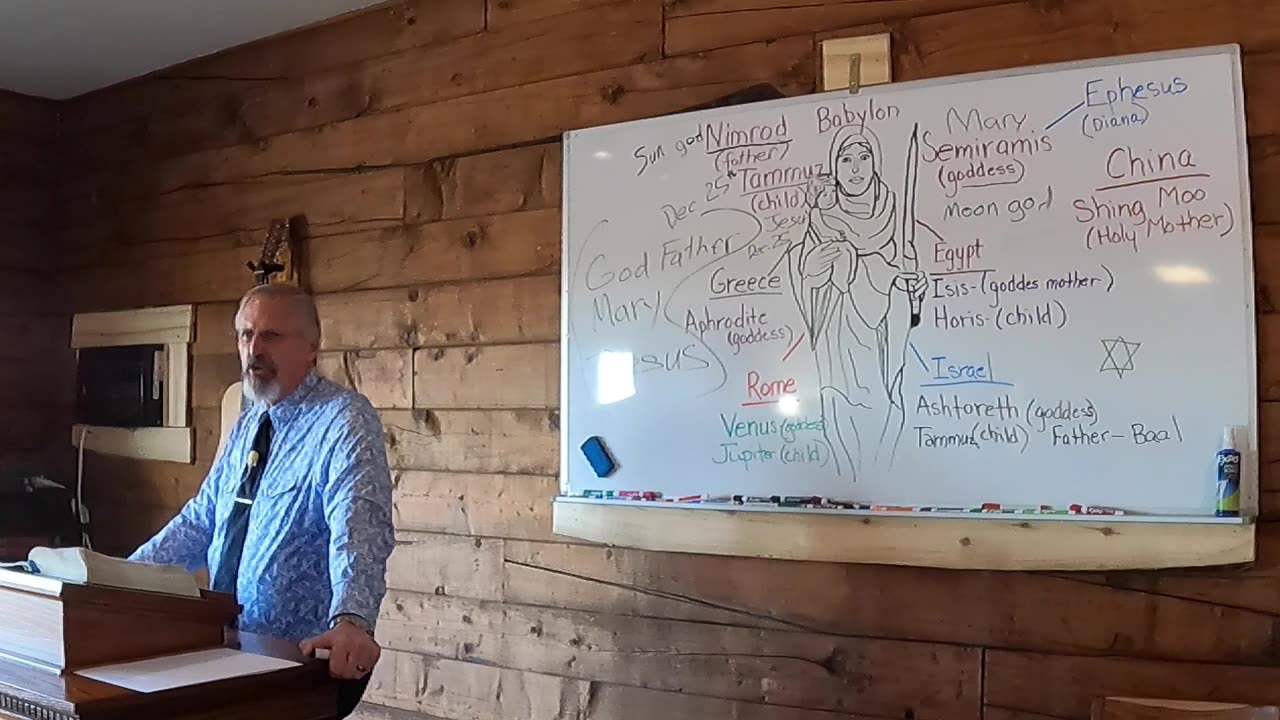 Babylon
Sun god Nimrod
(father)
Dec 25th Tammuz
(child)
Jesus
Dec. 25
God Father
Mary
Jesus
Greece
Aphrodite
(goddess)
Rome
Venus (goddess)
Jupiter (child)
Mary
Semiramis
(goddess)
Moon god
Ephesus
(Diana)
China
Shing Moo
(Holy Mother)
Egypt
Isis-(goddes mother)
Horis-(child)
Israel
Ashtoreth (goddess)
Tammuz (child) Father-Baal
EXPO